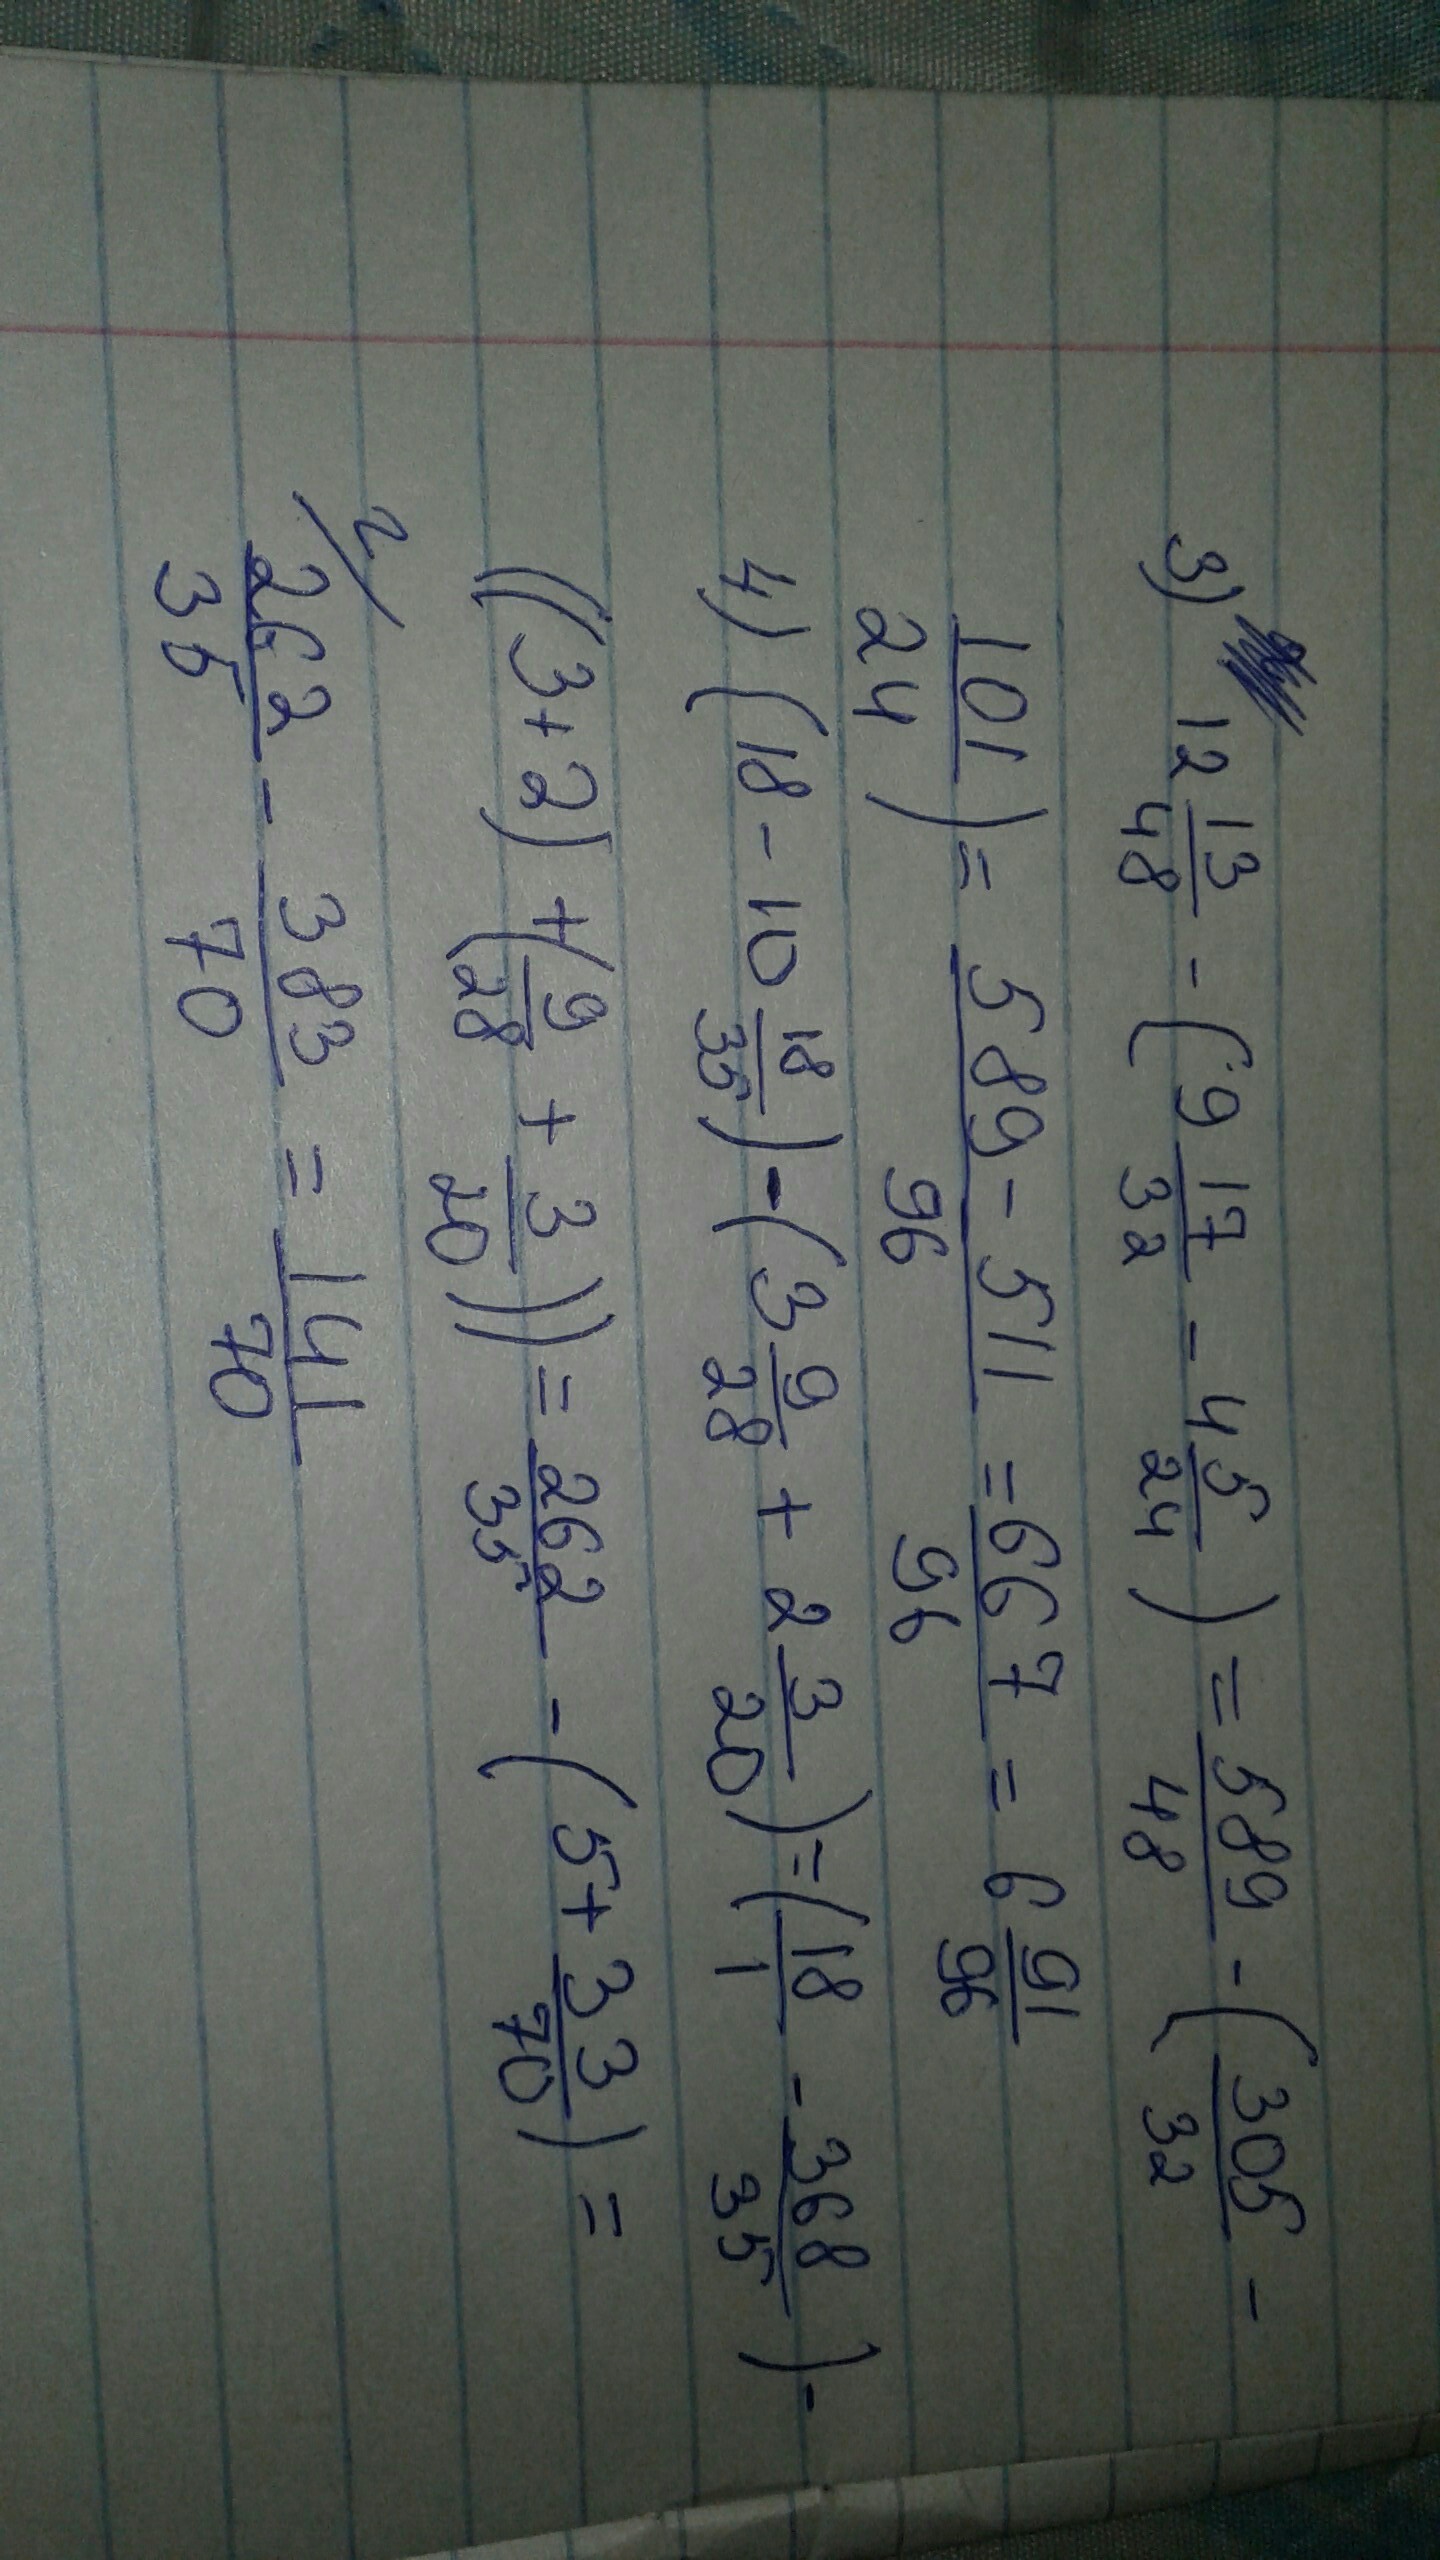 3) 12 13/48 - (9 17/32 - 4 5/24) = 589/48 - (305/32 -
101/24) = 589/96 - 511/96 = 667/96 = 6 91/96
4) (18 - 10 18/35) - (3 9/28 + 2 3/20) = (18/1 - 368/35) -
((3+2) + (9/28 + 3/20)) = 262/35 - (5 + 33/70) =
2/ 262/35 - 383/70 = 141/70